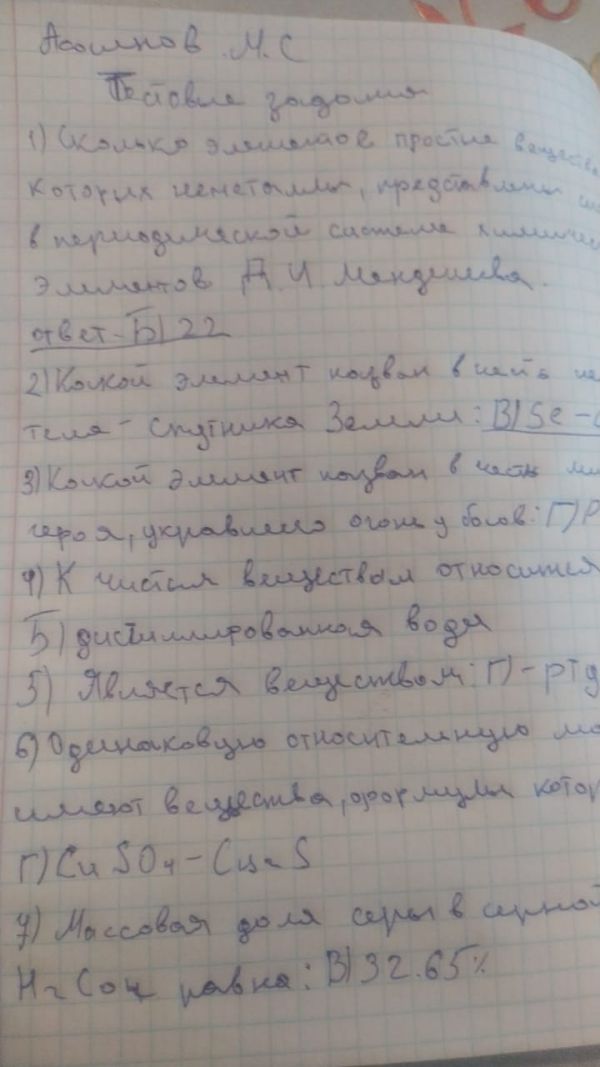 Асоинов М.С
Тестовые задания
1) Сколько элементов простые вещества
которых неметаллы, представлены
в периодической системе химичес
Элементов Д И Менделеева.
ответ - Б) 22
2) Какой элемент назван в честь
теля - спутника Земли: В) Se -
3) Какой элемент назван в честь ми
героя, укравшего огонь у богов: Г) P
4) К чистым веществам относится
Б) дистиллированная вода
5) Является веществом: Г) - рту
6) Одинаковую относительную мо
имеют вещества, формулы котор
Г) CuSO4 - Cu2S
7) Массовая доля серы в серной
H2 Со4 равна: В) 32.65%